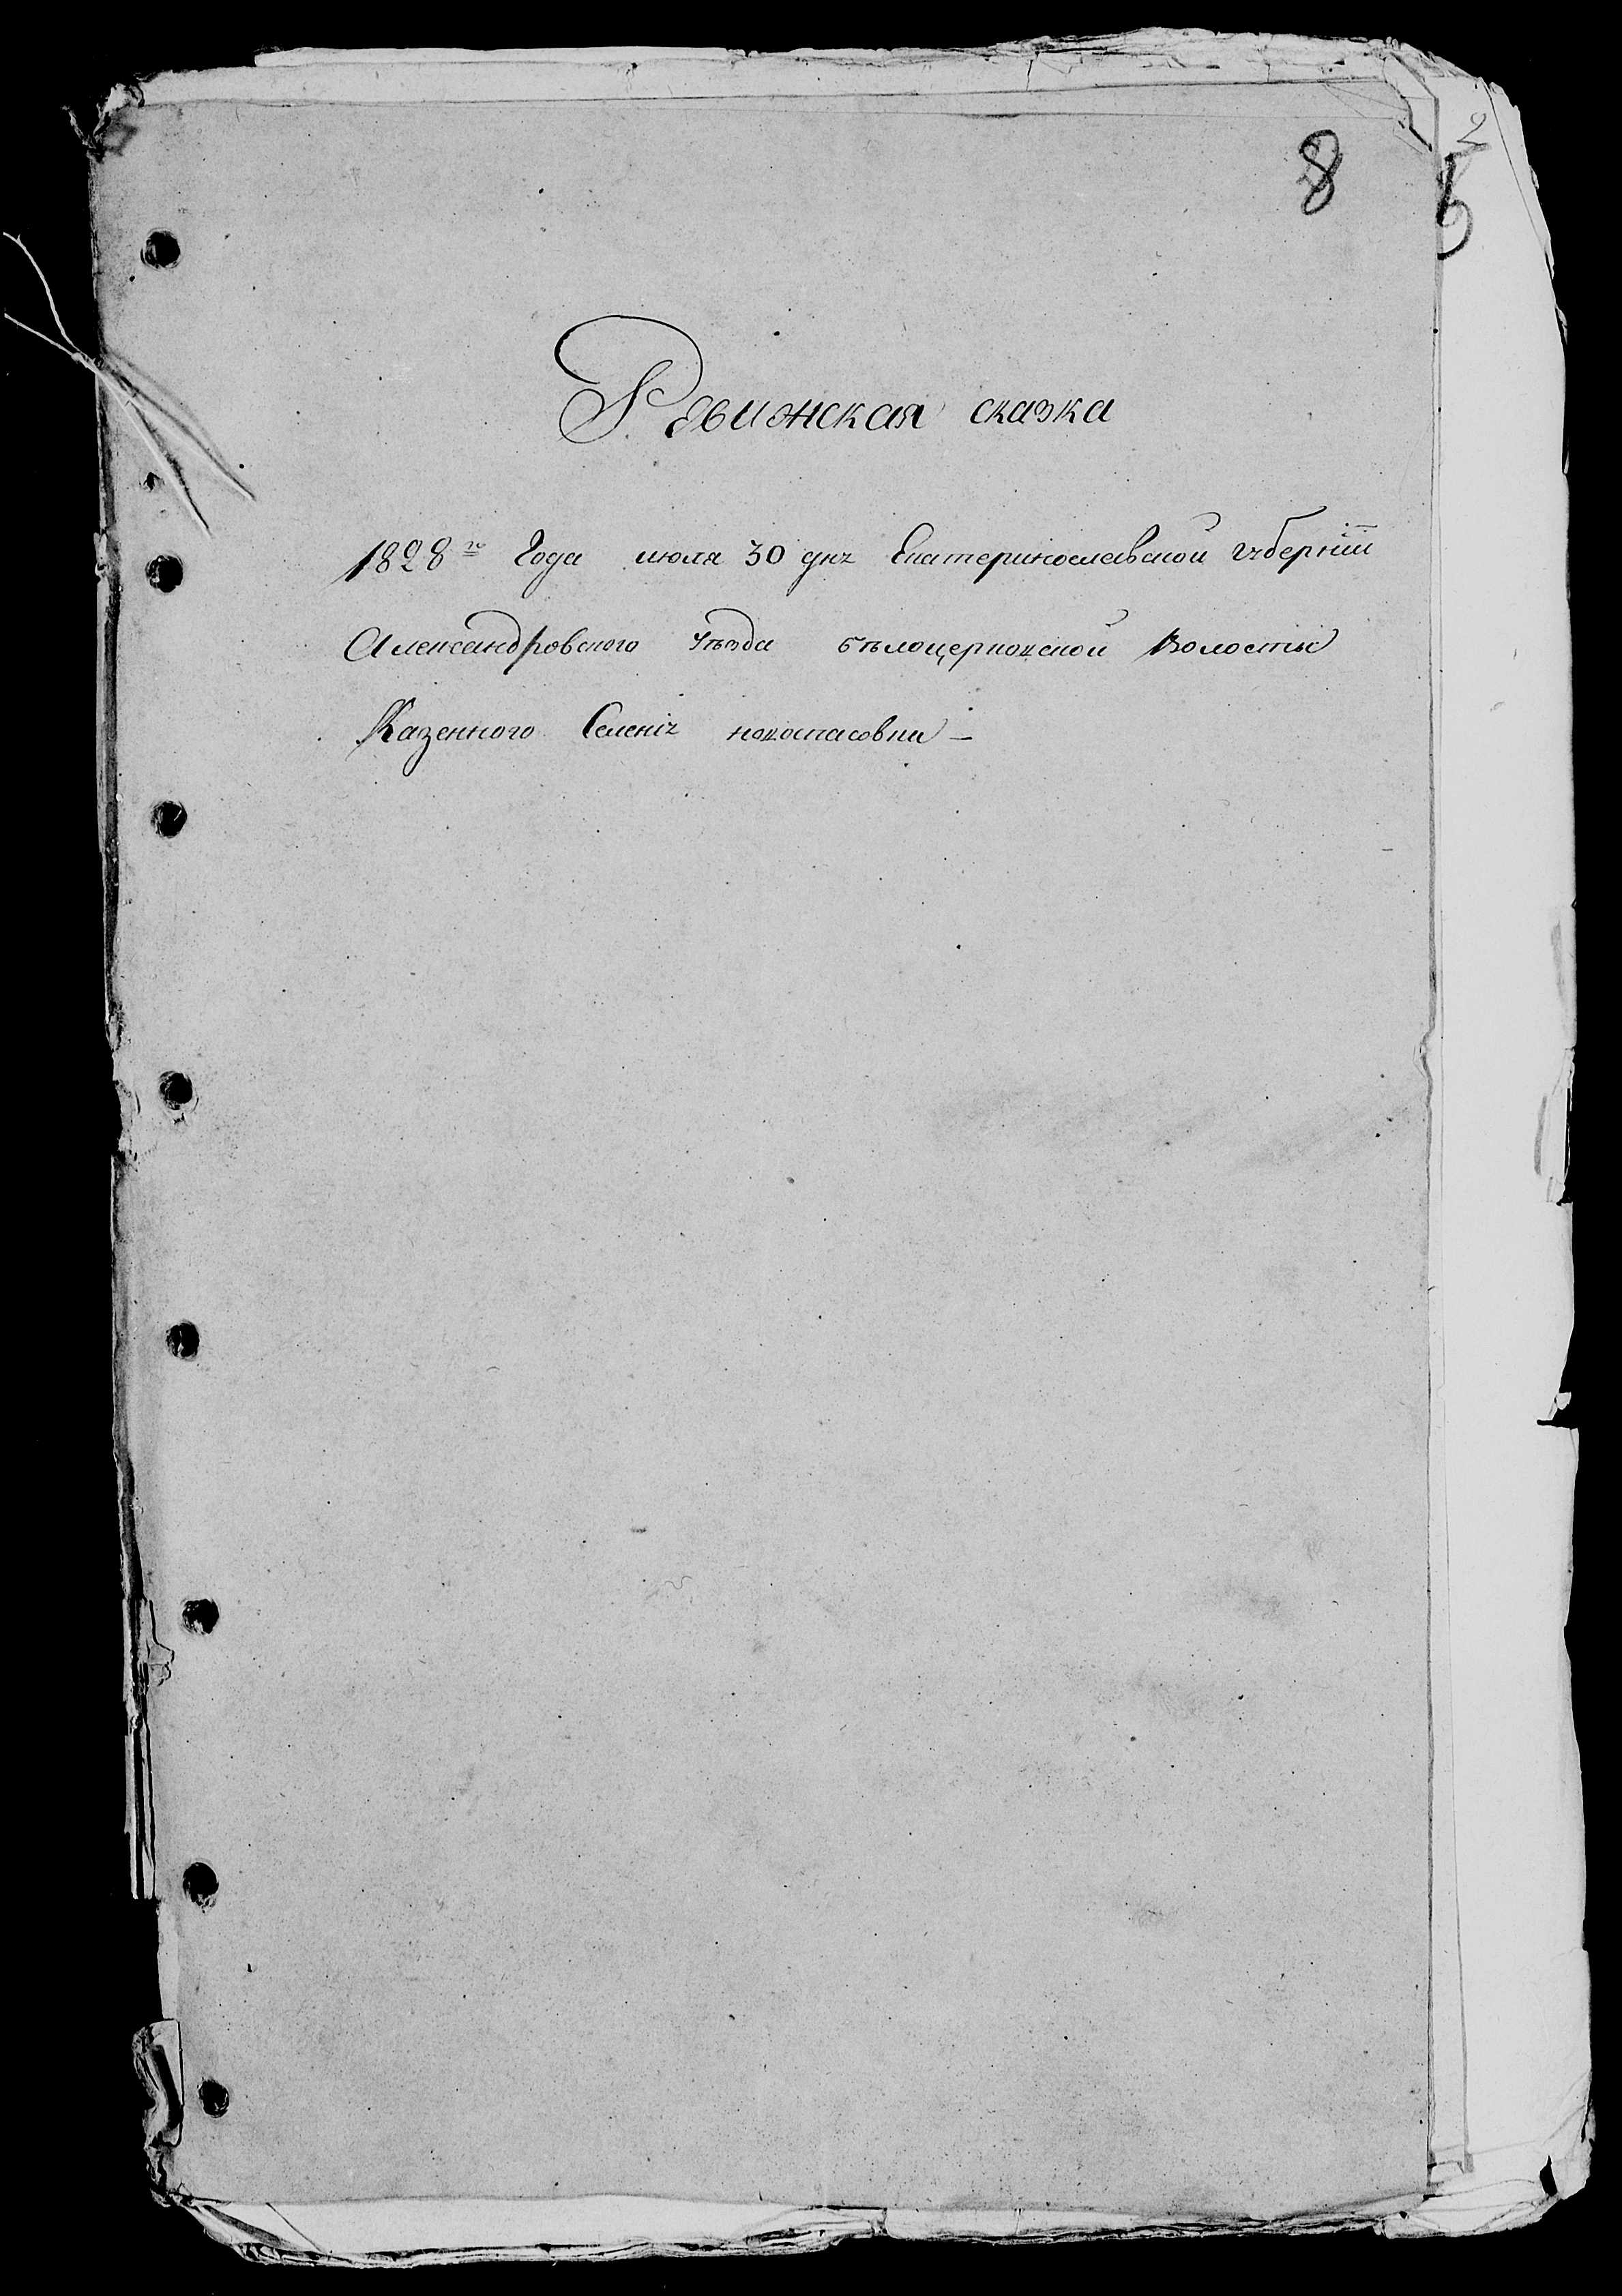 8
2
Ревижская сказка
1828го Года июля 30 дня Екатеринославской губерніи
Александровского уѣзда бѣлоцерковской Волости
Казенного Селенія новоспасовки —